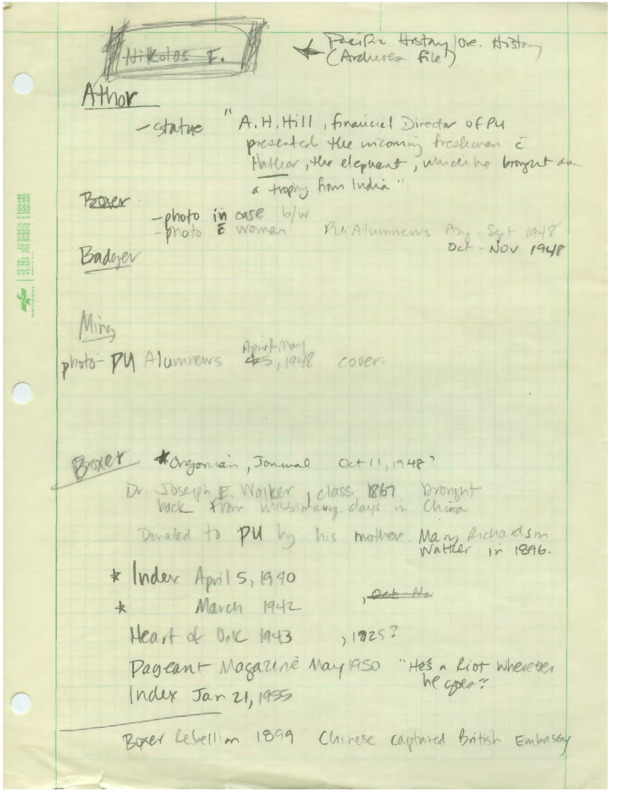 Nikolas E.
Pacific History/Ore. History
(Archives File)
Athor
- statue " A.H. Hill, financial Director of PU
presented the incoming freshmen c̄
Hathor, the elephant, which he brought as
a trophy from India "
Boxer
- photo in case b/w
- photo c̄ woman PU. Alumnews Aug - Sept 1948
Oct - Nov 1948
Badger
Ming
photo - PU Alumnews April/May 1948 cover.
Boxer * Orgonian, Jornual Oct 11, 1948?
Dr. Joseph E. Walker, class, 1867 brought
back from missionary days in China
Donated to PU by his mother. Mary Richardson
Walker in 1896.
* Index April 5, 1940
* March 1942 , Oct - No
Heart of Oak 1943 , 1925?
Pageant Magazine May 1950 "He's a Riot Wherever
he goes"
Index Jan 21, 1955
Boxer Rebellion 1899 Chinese captured British Embassy